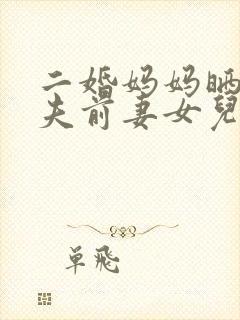 二婚妈妈晒
夫前妻女兒
单飛